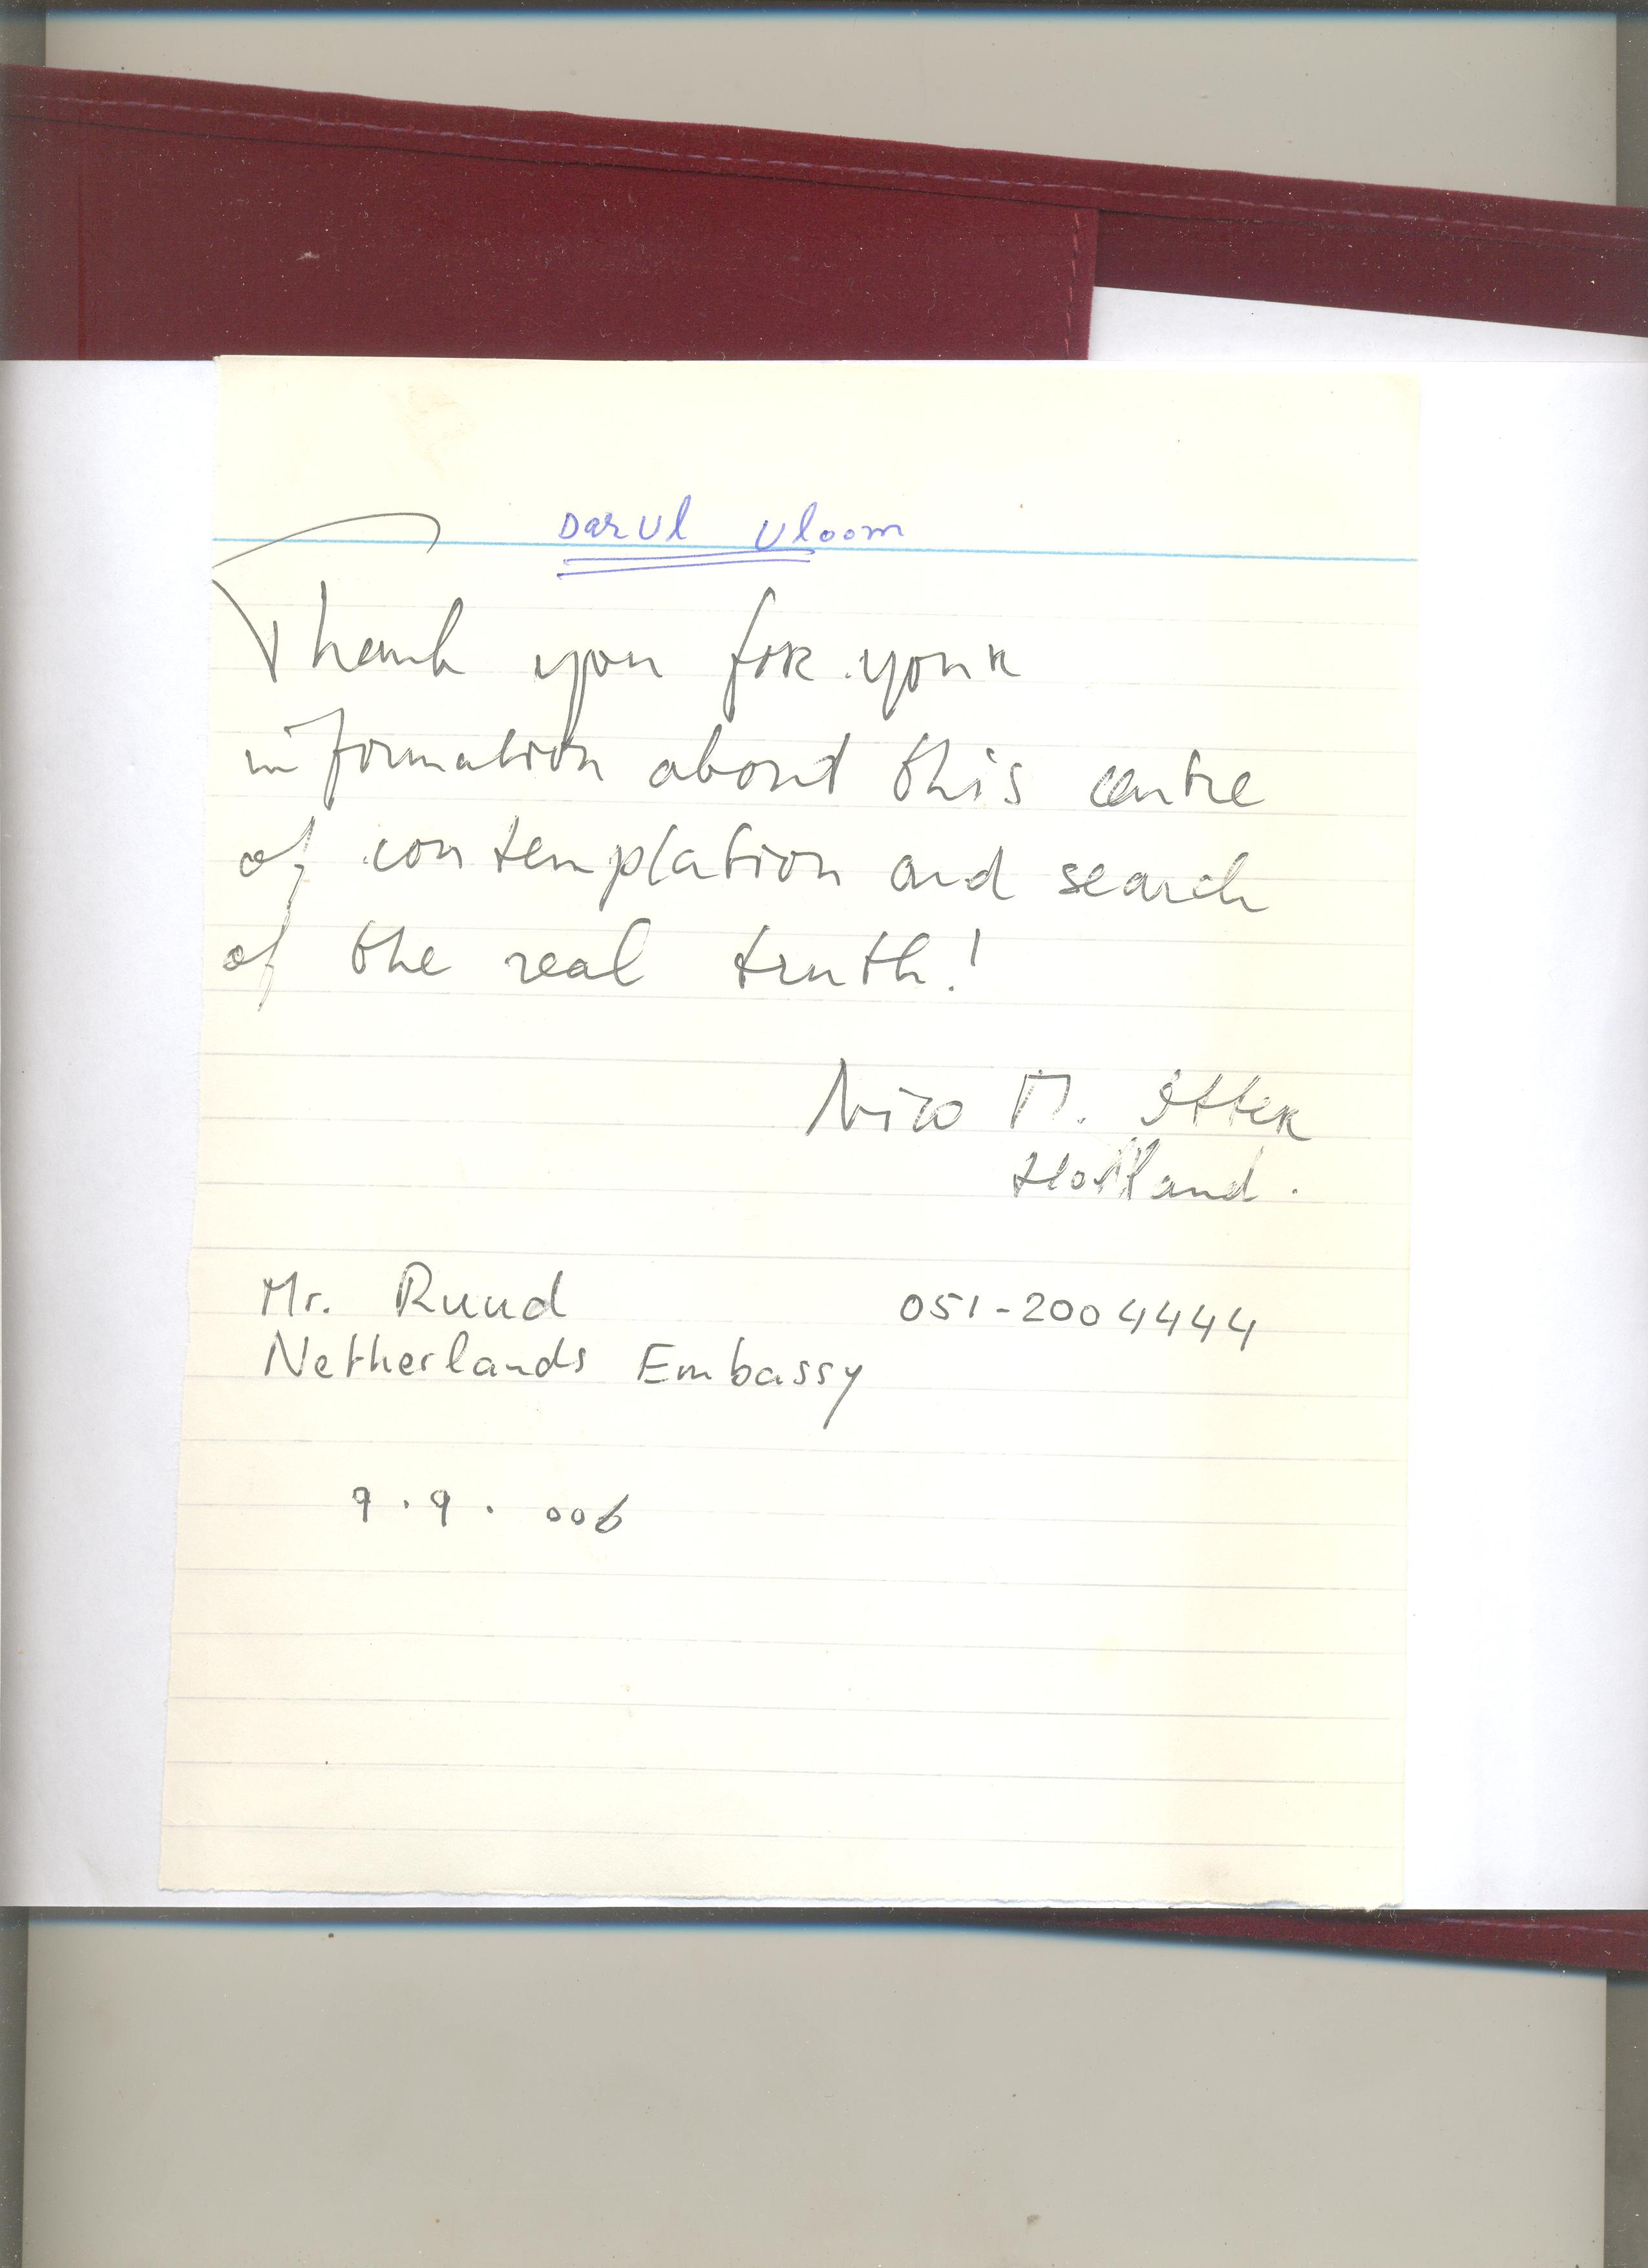 Darul Uloom
Thank you for your
information about this centre
of contemplation and search
of the real truth!
Nico M.
Holland.
Mr. Ruud 051-2004444
Netherlands Embassy
9.9.006